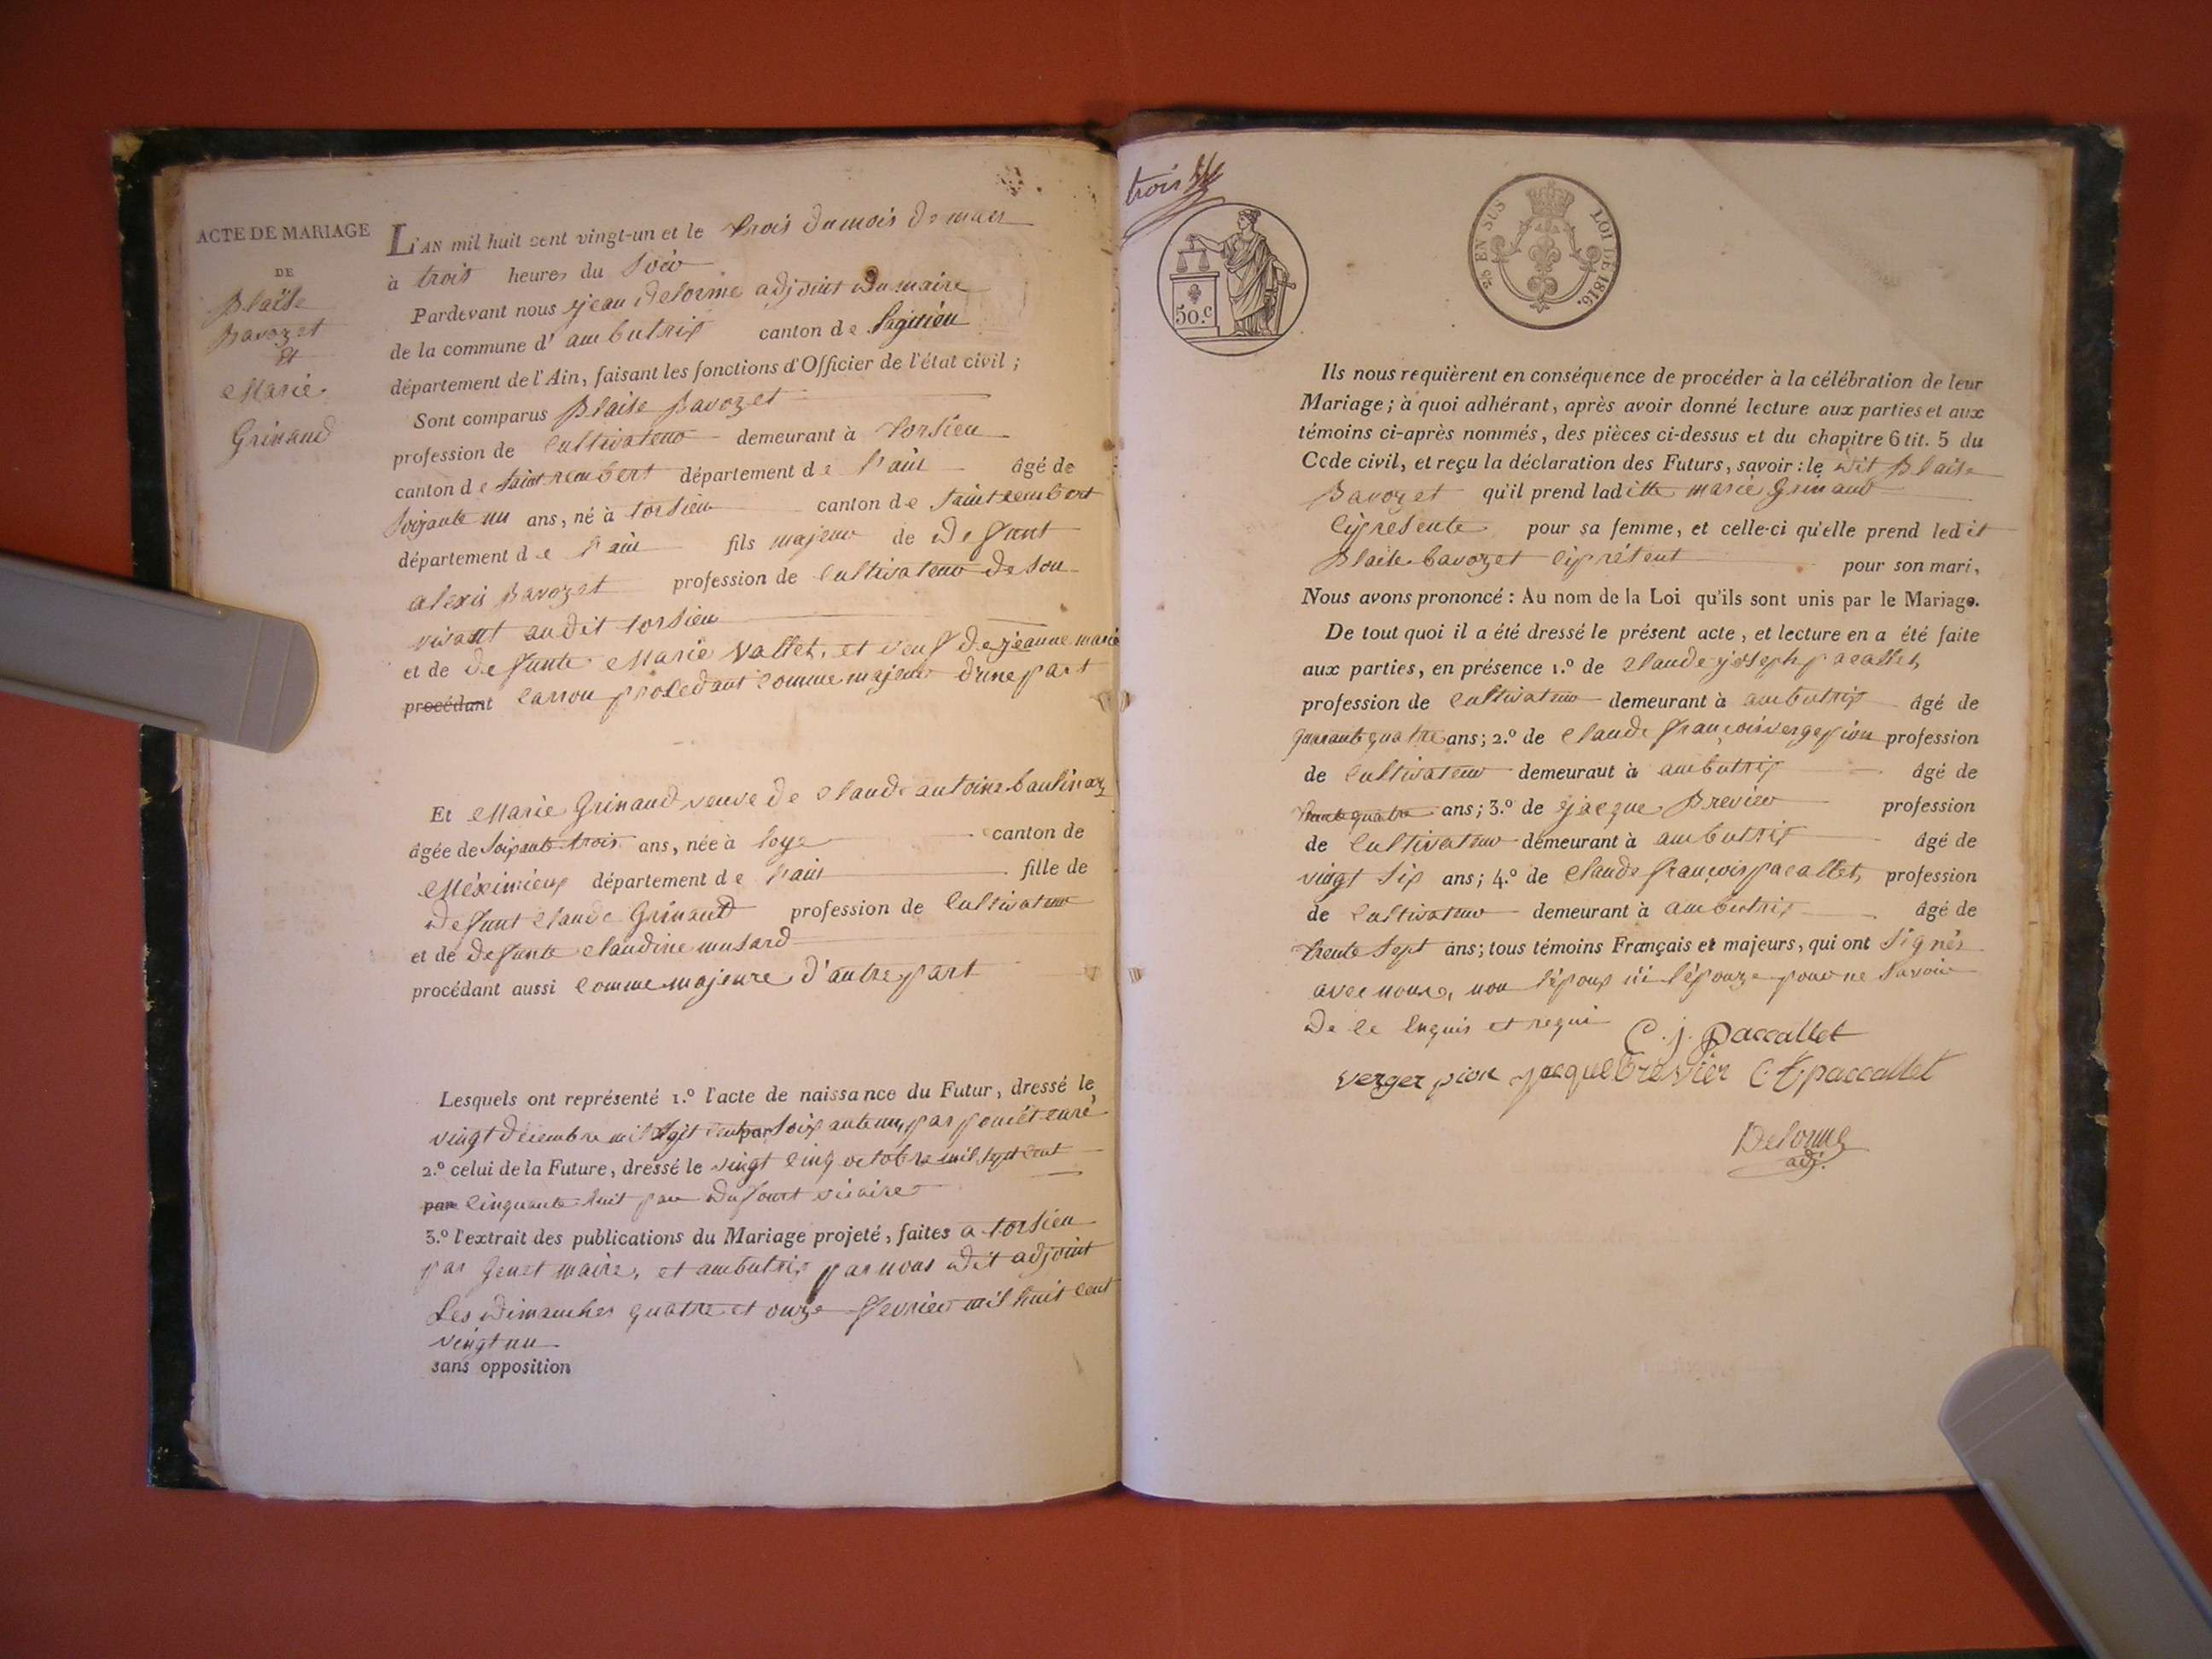 ACTE DE MARIAGE
DE
Blaise
Bavozet
Et
Marie
Grinaud
L'AN mil huit cent vingt-un et le trois du mois de mars
à trois heures du soir
Pardevant nous jean delorme adjoint du maire
de la commune d' ambutrix canton de lagnieu
département de l'Ain, faisant les fonctions d'Officier de l'état civil ;
Sont comparus Blaise Bavozet
profession de cultivateur demeurant à torsieu
canton de saint rembert département de l'ain âgé de
soixante un ans, né à torsieu canton de saint rembert
département de l'ain fils majeur de defunt
alexis Bavozet profession de cultivateur de son
vivant audit torsieu
et de defunte Marie Vallet, et veuf de jeanne marie
procédant carron procedant comme majeur d'une part
Et Marie Grinaud veuve de claude antoine baulinaz
âgée de soixante trois ans, née à loye canton de
Méximieux département de l'ain fille de
defunt claude Grinaud profession de cultivateur
et de defunte claudine musard
procédant aussi comme majeure d'autre part
Lesquels ont représenté 1.º l'acte de naissance du Futur, dressé le
vingt decembre mil sept cent par soixante un, par poncet curé
2.º celui de la Future, dressé le vingt cinq octobre mil sept cent
par cinquante huit par dufourt vicaire
3.º l'extrait des publications du Mariage projeté, faites a torsieu
par Genet maire, et ambutrix par nous dit adjoint
Les dimanches quatre et onze fevrier mil huit cent
vingt un
sans opposition
trois
50.c
2.es EN SUS LOI DE 1816.
Ils nous requièrent en conséquence de procéder à la célébration de leur
Mariage ; à quoi adhérant, après avoir donné lecture aux parties et aux
témoins ci-après nommés, des pièces ci-dessus et du chapitre 6 tit. 5 du
Code civil, et reçu la déclaration des Futurs, savoir : le dit Blaise
Bavozet qu'il prend laditte marie Grinaud
cy presente pour sa femme, et celle-ci qu'elle prend ledit
Blaise bavozet cy présent pour son mari,
Nous avons prononcé : Au nom de la Loi qu'ils sont unis par le Mariage.
De tout quoi il a été dressé le présent acte, et lecture en a été faite
aux parties, en présence 1.º de claude joseph pacallet,
profession de cultivateur demeurant à ambutrix âgé de
quarante quatre ans ; 2.º de claude françois vergepion profession
de cultivateur demeurant à ambutrix âgé de
trente quatre ans ; 3.º de jacque Brevier profession
de cultivateur demeurant à ambutrix âgé de
vingt six ans ; 4.º de claude françois pacallet, profession
de cultivateur demeurant à ambutrix âgé de
trente sept ans ; tous témoins Français et majeurs, qui ont signés
avec nous, non l'époux ni l'épouze pour ne savoir
de ce enquis et requi
C. j. paccallet
verger pion jacque brevier C. f. paccallet
Delorme
adj.